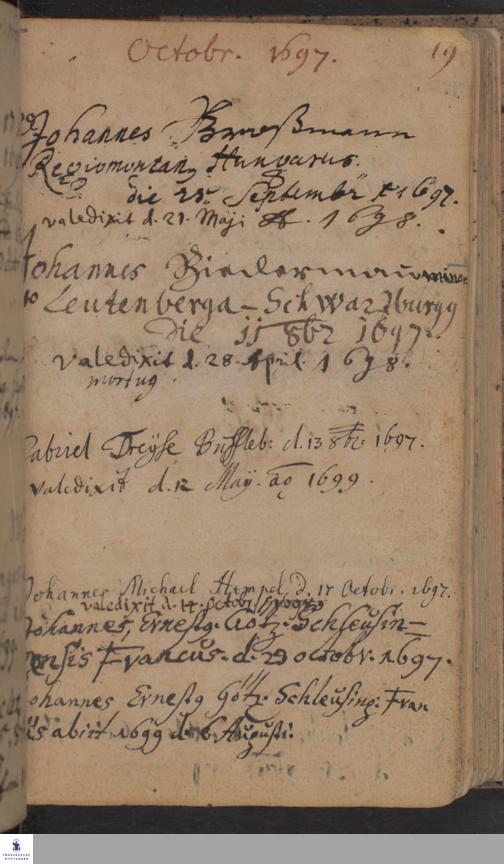 Octobr. 1697. 19
Johannes Broeßmann
Regiomontan9 Hungarus.
die 25 Septembr 1697.
valedixit d. 21. Maji 1698.
Johannes Biedermann
Leutenberga-Schwartzburgg
die 11 8br 1697.
valedixit d. 28. April. 1698.
mortu9
Gabriel Treÿse Buttleb: d. 13 8br 1697.
valedixit d. 12 Maÿ. ao 1699.
Johannes Michael Hempel. d. 15 Octobr. 1697.
valedixit d. 14. Octobr.
Johannes, Ernest9. Götz. Schleusin-
ensis Francus. d. 29 octobr. 1697.
Johannes Ernest9 Götz. Schleusing: Fran
abiit 1699 d. 6 Augusti.